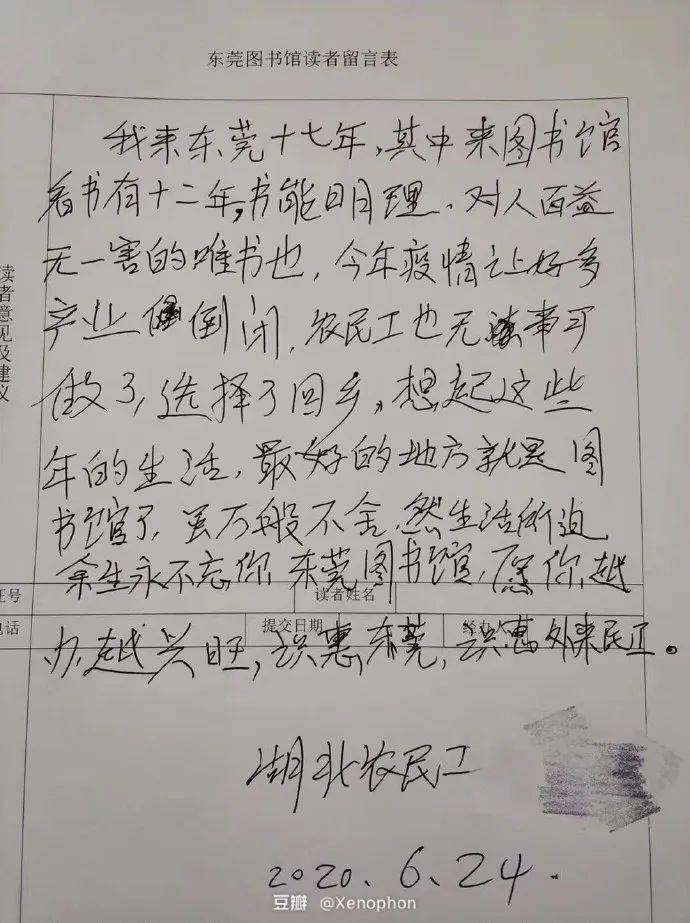 东莞图书馆读者留言表
我来东莞十七年,其中来图书馆
看书有十二年,书能明理、对人百益
无一害的唯书也,今年疫情让好多
产业倒闭,农民工也无事可
做了,选择了回乡。想起这些
年的生活,最好的地方就是图
书馆了,虽万般不舍,然生活所迫
余生永不忘你,东莞图书馆,愿你越
办越兴旺,识惠东莞,识惠外来民工。
读者意见及建议
证号
读者姓名
电话
提交日期
经办人
湖北农民工
2020、6、24.
豆瓣 @Xenophon